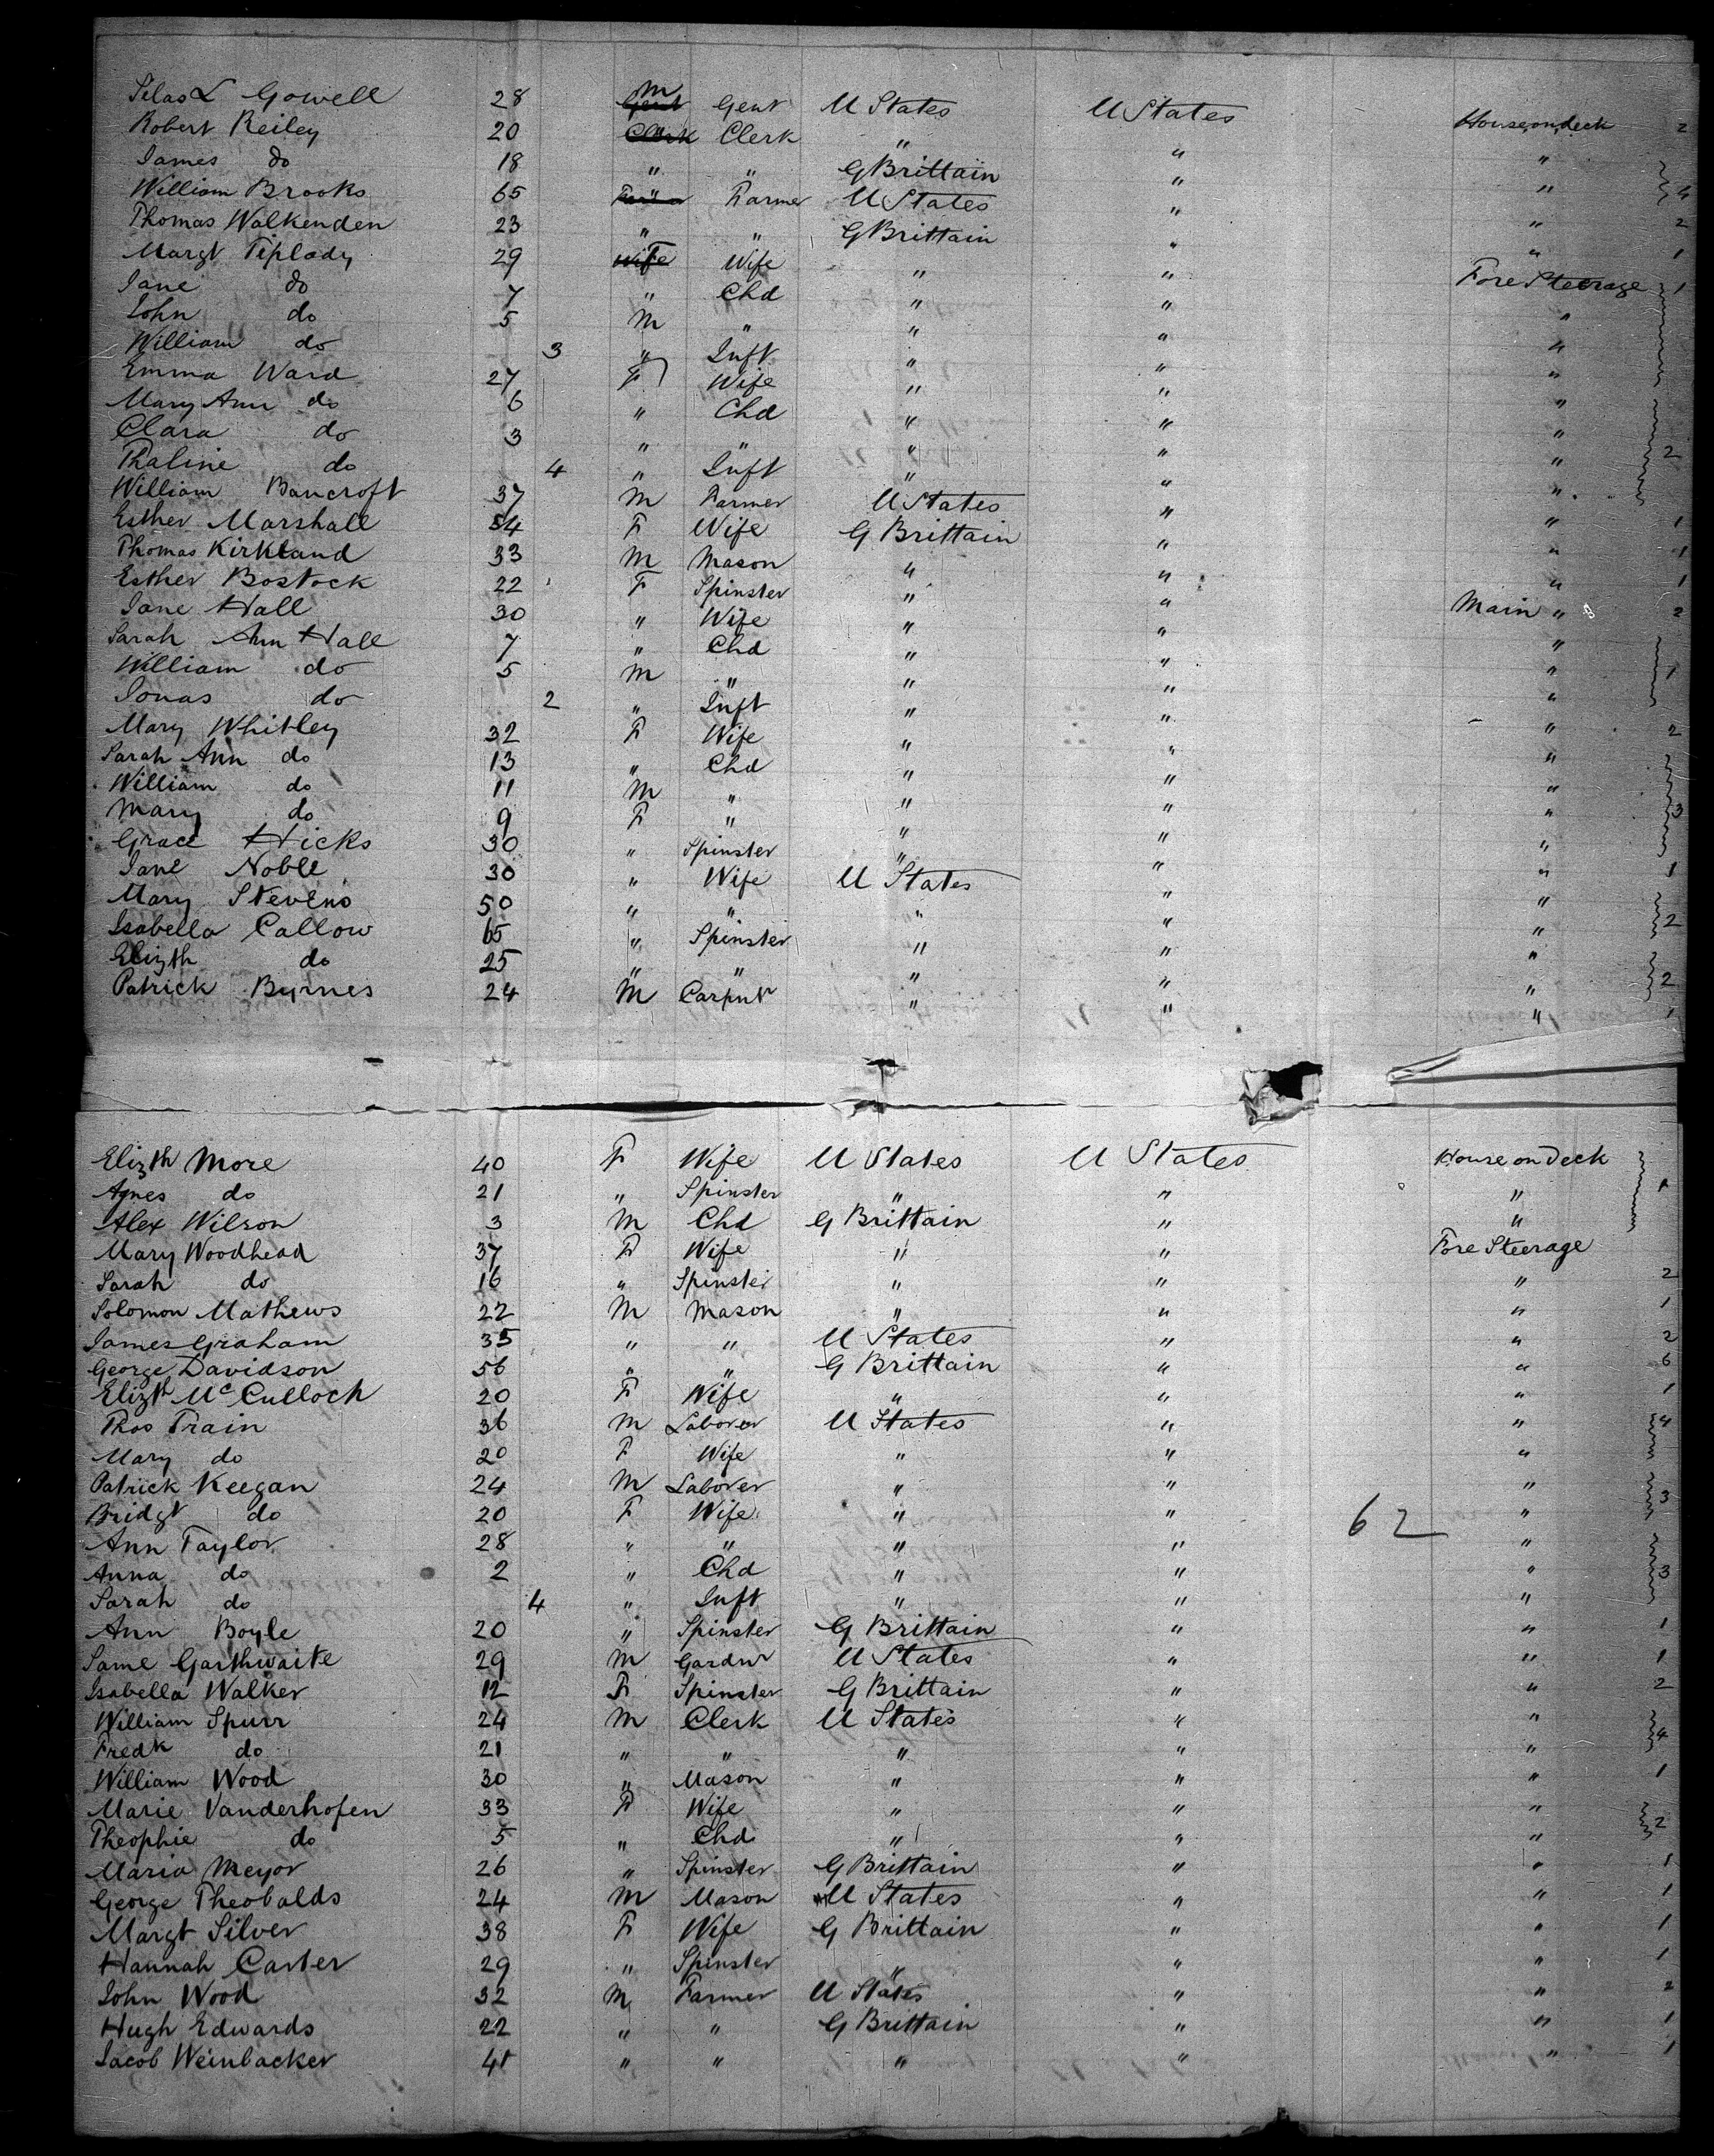 Silas L Gowell 28 M Gent U States U States House on deck 2
Robert Reiley 20 Clerk " " " 
James do 18 " " G Brittain " " 4
William Brooks 65 Farmer U States " "
Thomas Walkenden 23 " " G Brittain " " 2
Margt Tiplady 29 F Wife " " " 1
Jane do 7 " Chd " " Fore Steerage 1
John do 5 M " " " "
William do 3 " Inft " " "
Emma Ward 27 F Wife " " "
Mary Ann do 6 " Chd " " "
Clara do 3 " " " " "
Thaline do 4 " Inft " " " 2
William Bancroft 37 M Farmer U States " "
Esther Marshall 54 F Wife G Brittain " " 1
Thomas Kirkland 33 M Mason " " " 1
Esther Bostock 22 F Spinster " " " 1
Jane Hall 30 " Wife " " Main " 2
Sarah Ann Hall 7 " Chd " " "
William do 5 M " " " " 1
Jonas do 2 " Inft " " "
Mary Whitley 32 F Wife " " " 2
Sarah Ann do 13 " Chd " " "
William do 11 M " " " "
Mary do 9 F " " " " 3
Grace Hicks 30 " Spinster " " "
Jane Noble 30 " Wife U States " " 1
Mary Stevens 50 " " " " "
Isabella Callow 65 " Spinster " " " 2
Elizth do 25 " " " " "
Patrick Byrnes 24 M Carpntr " " " 2
" 1
Elizth More 40 F Wife U States U States House on Deck
Agnes do 21 " Spinster " " " 1
Alex Wilson 3 M Chd G Brittain " "
Mary Woodhead 37 F Wife " " Fore Steerage
Sarah do 16 " Spinster " " " 2
Solomon Mathews 22 M Mason " " " 1
James Graham 35 " " U States " " 2
George Davidson 56 " " G Brittain " " 6
Elizth McCulloch 20 F Wife " " " 1
Thos Train 36 M Laborer U States " " 4
Mary do 20 F Wife " " "
Patrick Keegan 24 M Laborer " " "
Bridgt do 20 F Wife " " 62 " 3
Ann Taylor 28 " " " " "
Anna do 2 " Chd " " " 3
Sarah do 4 " Inft " " "
Ann Boyle 20 " Spinster G Brittain " " 1
Jame Garthwaite 29 M Gardnr U States " " 1
Isabella Walker 12 F Spinster G Brittain " " 2
William Spurr 24 M Clerk U States " "
Fredk do 21 " " " " " 4
William Wood 30 " Mason " " " 1
Marie Vanderhofen 33 F Wife " " "
Theophie do 5 " Chd " " " 2
Maria Meyor 26 " Spinster G Brittain " " 1
George Theobalds 24 M Mason U States " " 1
Margt Silver 38 F Wife G Brittain " " 1
Hannah Carter 29 " Spinster " " " 1
John Wood 32 M Farmer U States " " 2
Hugh Edwards 22 " " G Brittain " " 1
Jacob Weinbacker 41 " " " " " 1